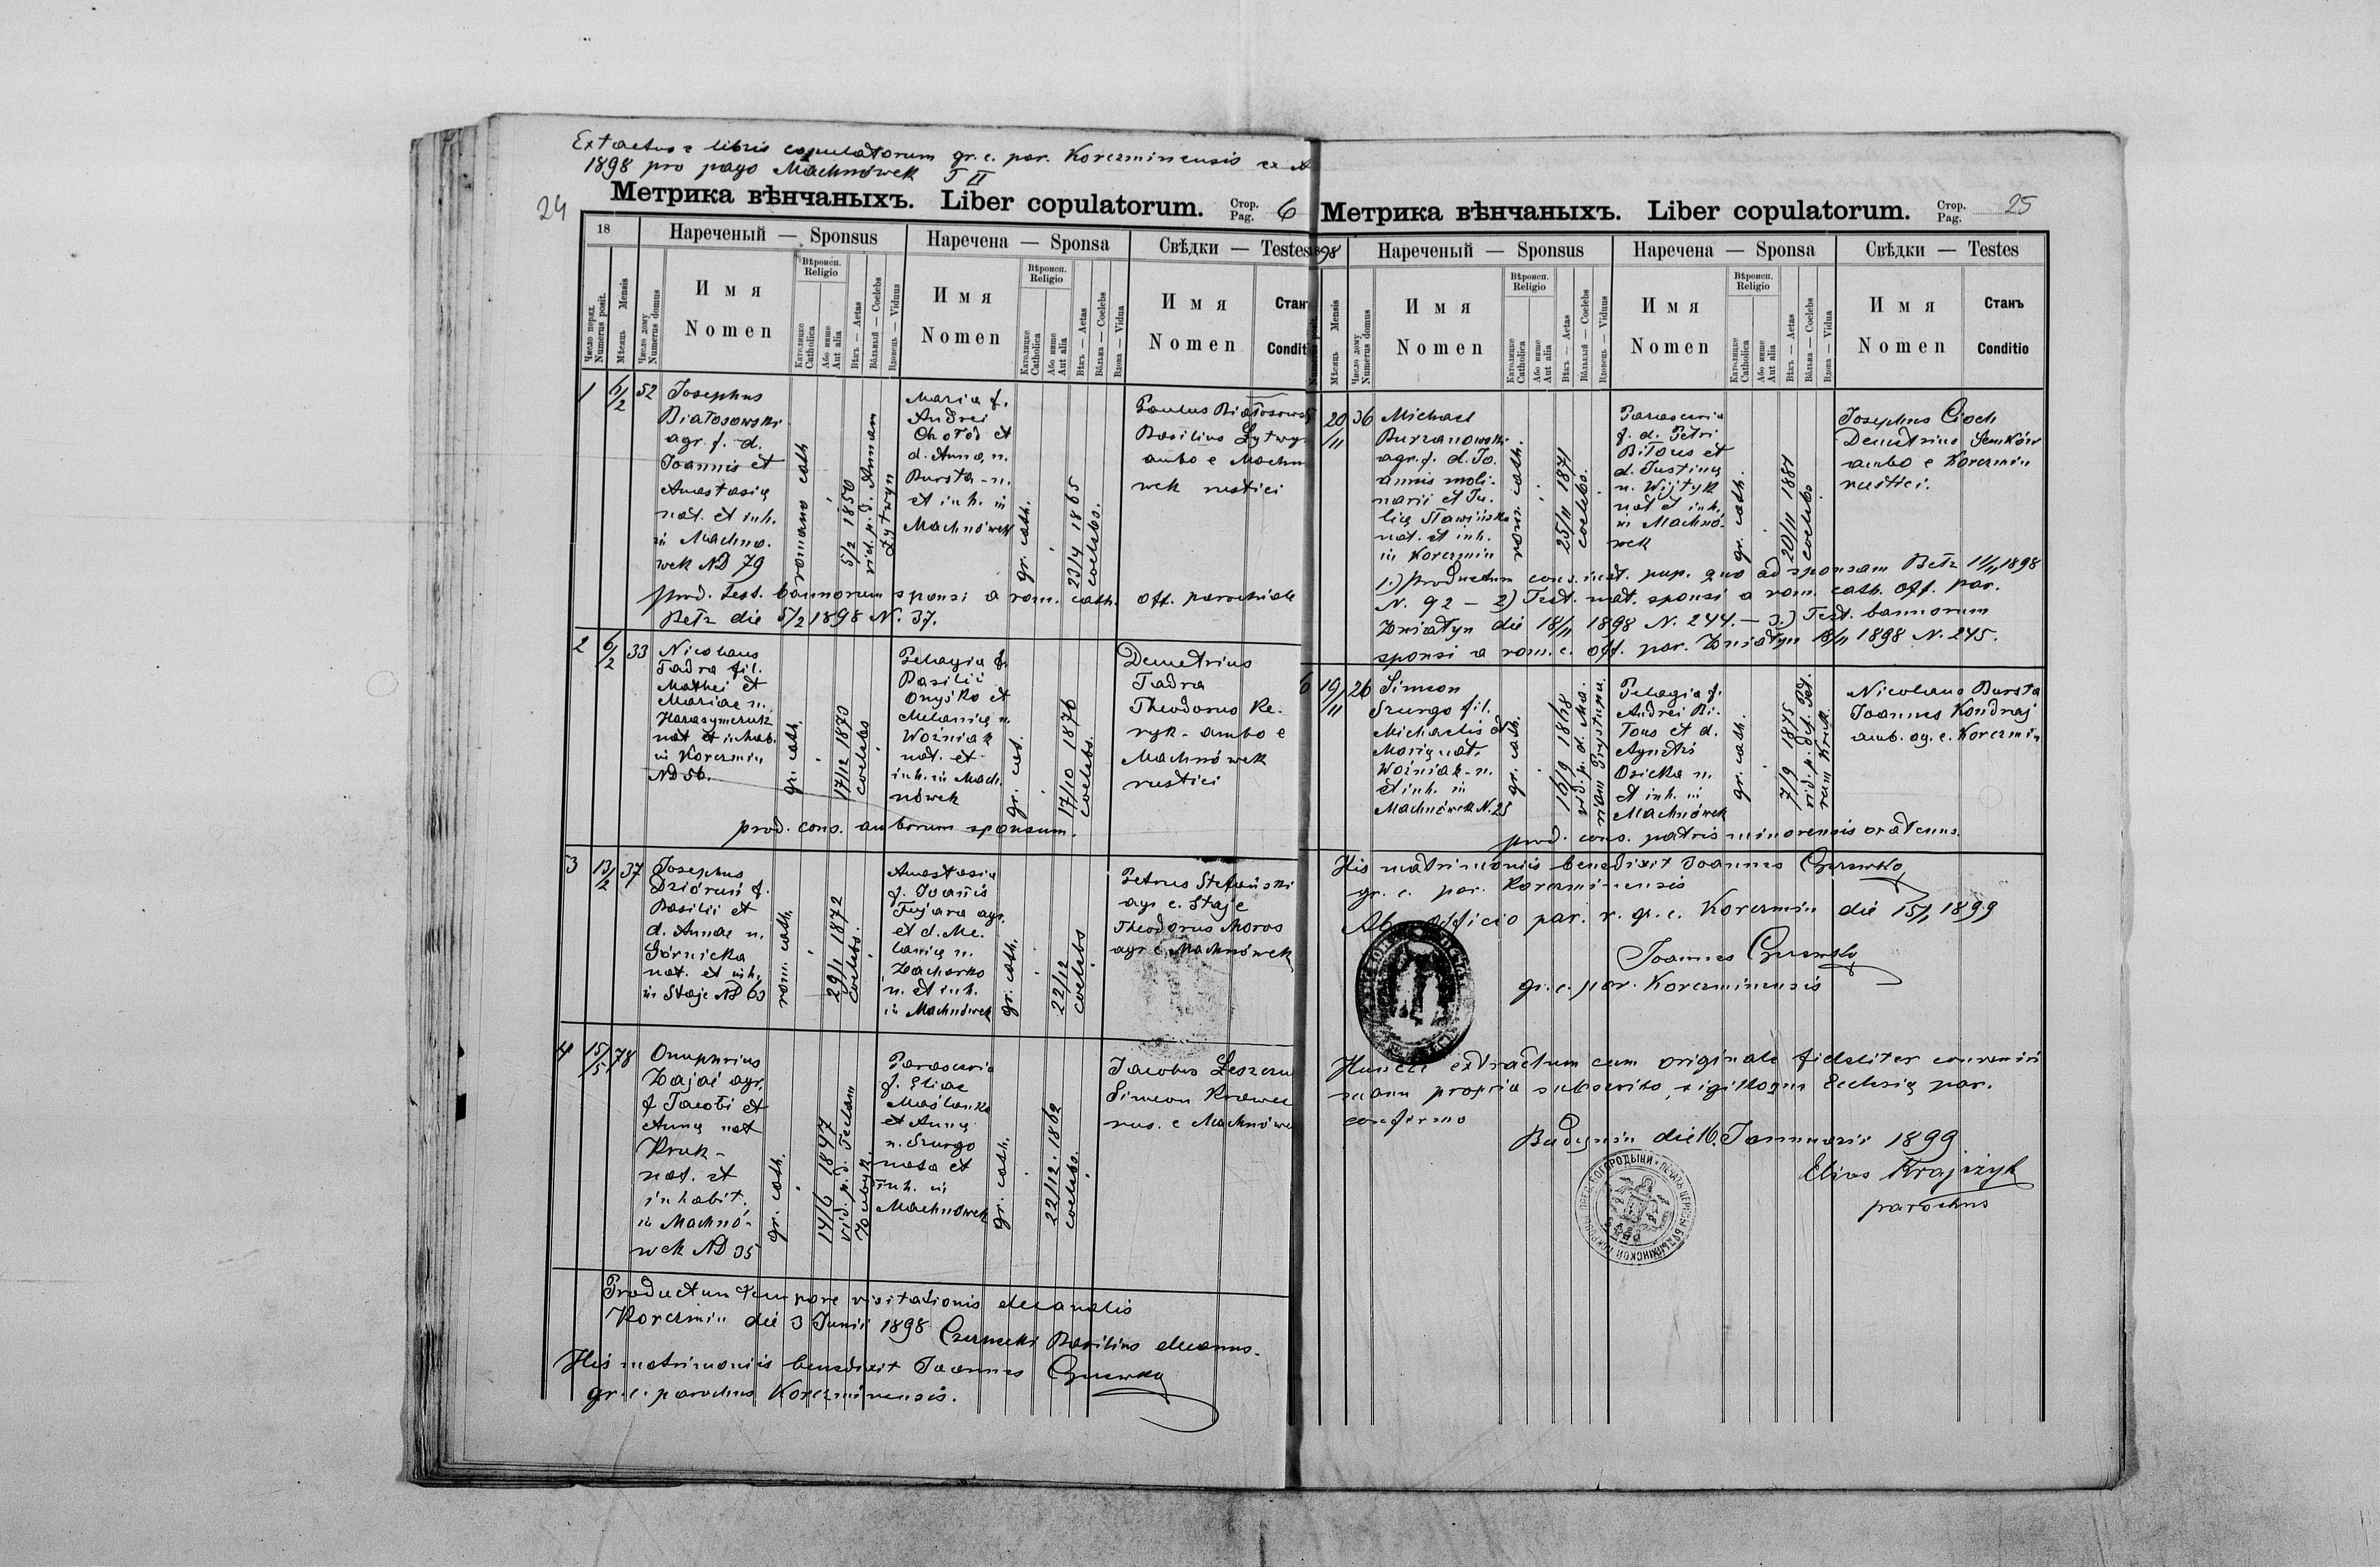 Extractus e libris copulatorum gr. c. par. Korczminensis ex A
1898 pro pago Machnówek T II
24
Метрика вѣнчаныхъ. Liber copulatorum. Стор. Pag. 6
18
Нареченый — Sponsus
Наречена — Sponsa
Свѣдки — Testes
Число поряд.
Numerus posit.
Мѣсяць Mensis
Число дому
Numerus domus
Имя
Nomen
Вѣроисп.
Religio
Католицке
Catholica
Або инше
Aut alia
Вѣкъ — Aetas
Вôльный — Coelebs
Вдовець — Viduus
Имя
Nomen
Вѣроисп.
Religio
Католицке
Catholica
Або инше
Aut alia
Вѣкъ — Aetas
Вôльна — Coelebs
Вдова — Vidua
Имя
Nomen
Стан
Condit
1
6/2
52
Josephus
Białosowski
agr. f. d.
Joannis et
Anastasię
nat. et inh.
in Machno.
wek ND 79
romano cath
5/2 1850
vid. p. d. Annam
Łytwyn
Maria f.
Andrei
Chołod et
d. Anna, n.
Bursta - n.
et inh. in
Machnówek
gr. cath.
23/4 1865
coelebs.
Paulus Białosows
Basilius Łytwyn
ambo e Machn
wek rustici
prod. test. bannorum sponsi a rom. cath. off. parochiale
Bełz die 5/2 1898 N. 37.
2
6/2
33
Nicolaus
Fadra fil.
Mathei et
Mariae n.
Harasymczuk
nat et inhab.
in Korczmin
ND 56.
gr. cath.
17/12 1873
coelebs
Pelagia f.
Basilii
Onyśko et
Melanię n.
Woźniak
nat. et
inh. in Mach.
nówek
gr. cat.
17/10 1876
coelebs.
Demetrius
Fadra
Theodorus Re.
ryk - ambo e
Machnówek
rustici
prod. cons. amborum sponsum.
3
13/2
37
Josephus
Dziórun f.
Basilii et
d. Annae n.
Górnicka
nat. et inh.
in Staje ND 63
rom. cath.
29/1 1872
coelebs.
Anastasia
f. Joannis
Fujara agr.
et d. Me.
lanię n.
Zacharko
n. et inh.
in Machnówek
gr. cath.
22/12
coelebs
Petrus Stefański
agr e. Staje
Theodorus Moros
agr e. Machnówek
4
15/5
78
Onuphrius
Zając agr.
f Jacobi et
Annę nat
Kruk -
nat. et
inhabit.
in Machnó-
wek ND 35
gr. cath.
14/6 1847
vid. p. d. Teclam
Parascevia
f. Eliae
Maślanka
et Annę
n. Szurgo
nata et
inh. in
Machnówek
gr. cath.
22/12. 1862
coelebs.
Jacobus Leszczu
Simeon Krawec
rus. e Machnówe
Productum tempore visitationis decanalis
Korczmin die 3 Junii 1898 Czernecki Basilius decanus.
His matrimoniis benedixit Joannes
gr. c. parochus Korczminensis.
Метрика вѣнчаныхъ. Liber copulatorum. Стор. Pag. 25
98
Нареченый — Sponsus
Наречена — Sponsa
Свѣдки — Testes
Numerus posit.
Мѣсяць Mensis
Число дому
Numerus domus
Имя
Nomen
Вѣроисп.
Religio
Католицке
Catholica
Або инше
Aut alia
Вѣкъ — Aetas
Вôльный — Coelebs
Вдовець — Viduus
Имя
Nomen
Вѣроисп.
Religio
Католицке
Catholica
Або инше
Aut alia
Вѣкъ — Aetas
Вôльна — Coelebs
Вдова — Vidua
Имя
Nomen
Станъ
Conditio
20/11
36
Michael
Burzanowski
agr. f. d. Jo.
annis moli.
narii et Ju.
lię Sławińska
nat. et inh.
in Korczmin
rom. cath.
25/11 1871
coelebs.
Parascevia
f. d. Petri
Biłous et
d. Justinę
n. Wijtyk
nat et inh.
in Machnó-
wek
gr. cath.
20/11 1881
coelebs
Josephus Cioch
Demetrius Semków
ambo e Korczmin
rustici.
1.) productum cons. inst. pup. quo ad sponsam Bełz 11/11 1898
N. 92 - 2) Test. nat. sponsi a rom. cath. off. par.
Żniatyn die 18/11 1898 N. 244. - 3.) Test. bannorum
sponsi a rom. c. off. par. Żniatyn 18/11 1898 N. 245.
6
19/11
26
Simeon
Szurgo fil.
Michaelis et
Marię nat.
Woźniak - n.
et inh. in
Machnówek N. 25
gr. cath.
16/9 1868
vid. p. d. Ma.
riam Prystupa.
Pelagia f.
Andrei Bi-
łous et d.
Agnetis
Osicka n.
et inh. in
Machnówek
gr. cath.
7/9 1875
vid. p. def. Pet.
rum Kruk.
Nicolaus Bursta
Joannes Kondraj
amb. ag. e. Korczmin
prod. cons. patris minorensis oratenus.
His matrimoniis benedixit Joannes
gr. c. par. Korczminensis
Ab officio par. r. gr. c. Korczmin die 15/1 1899
Joannes
gr. c. par. Korczminensis
Huncce extractum cum originale fideliter convenire
manu propria subscribo, sigilloque Ecclesię par.
confirmo
Budynin die 16. Januarii 1899
Elias Krajczyk
parochus